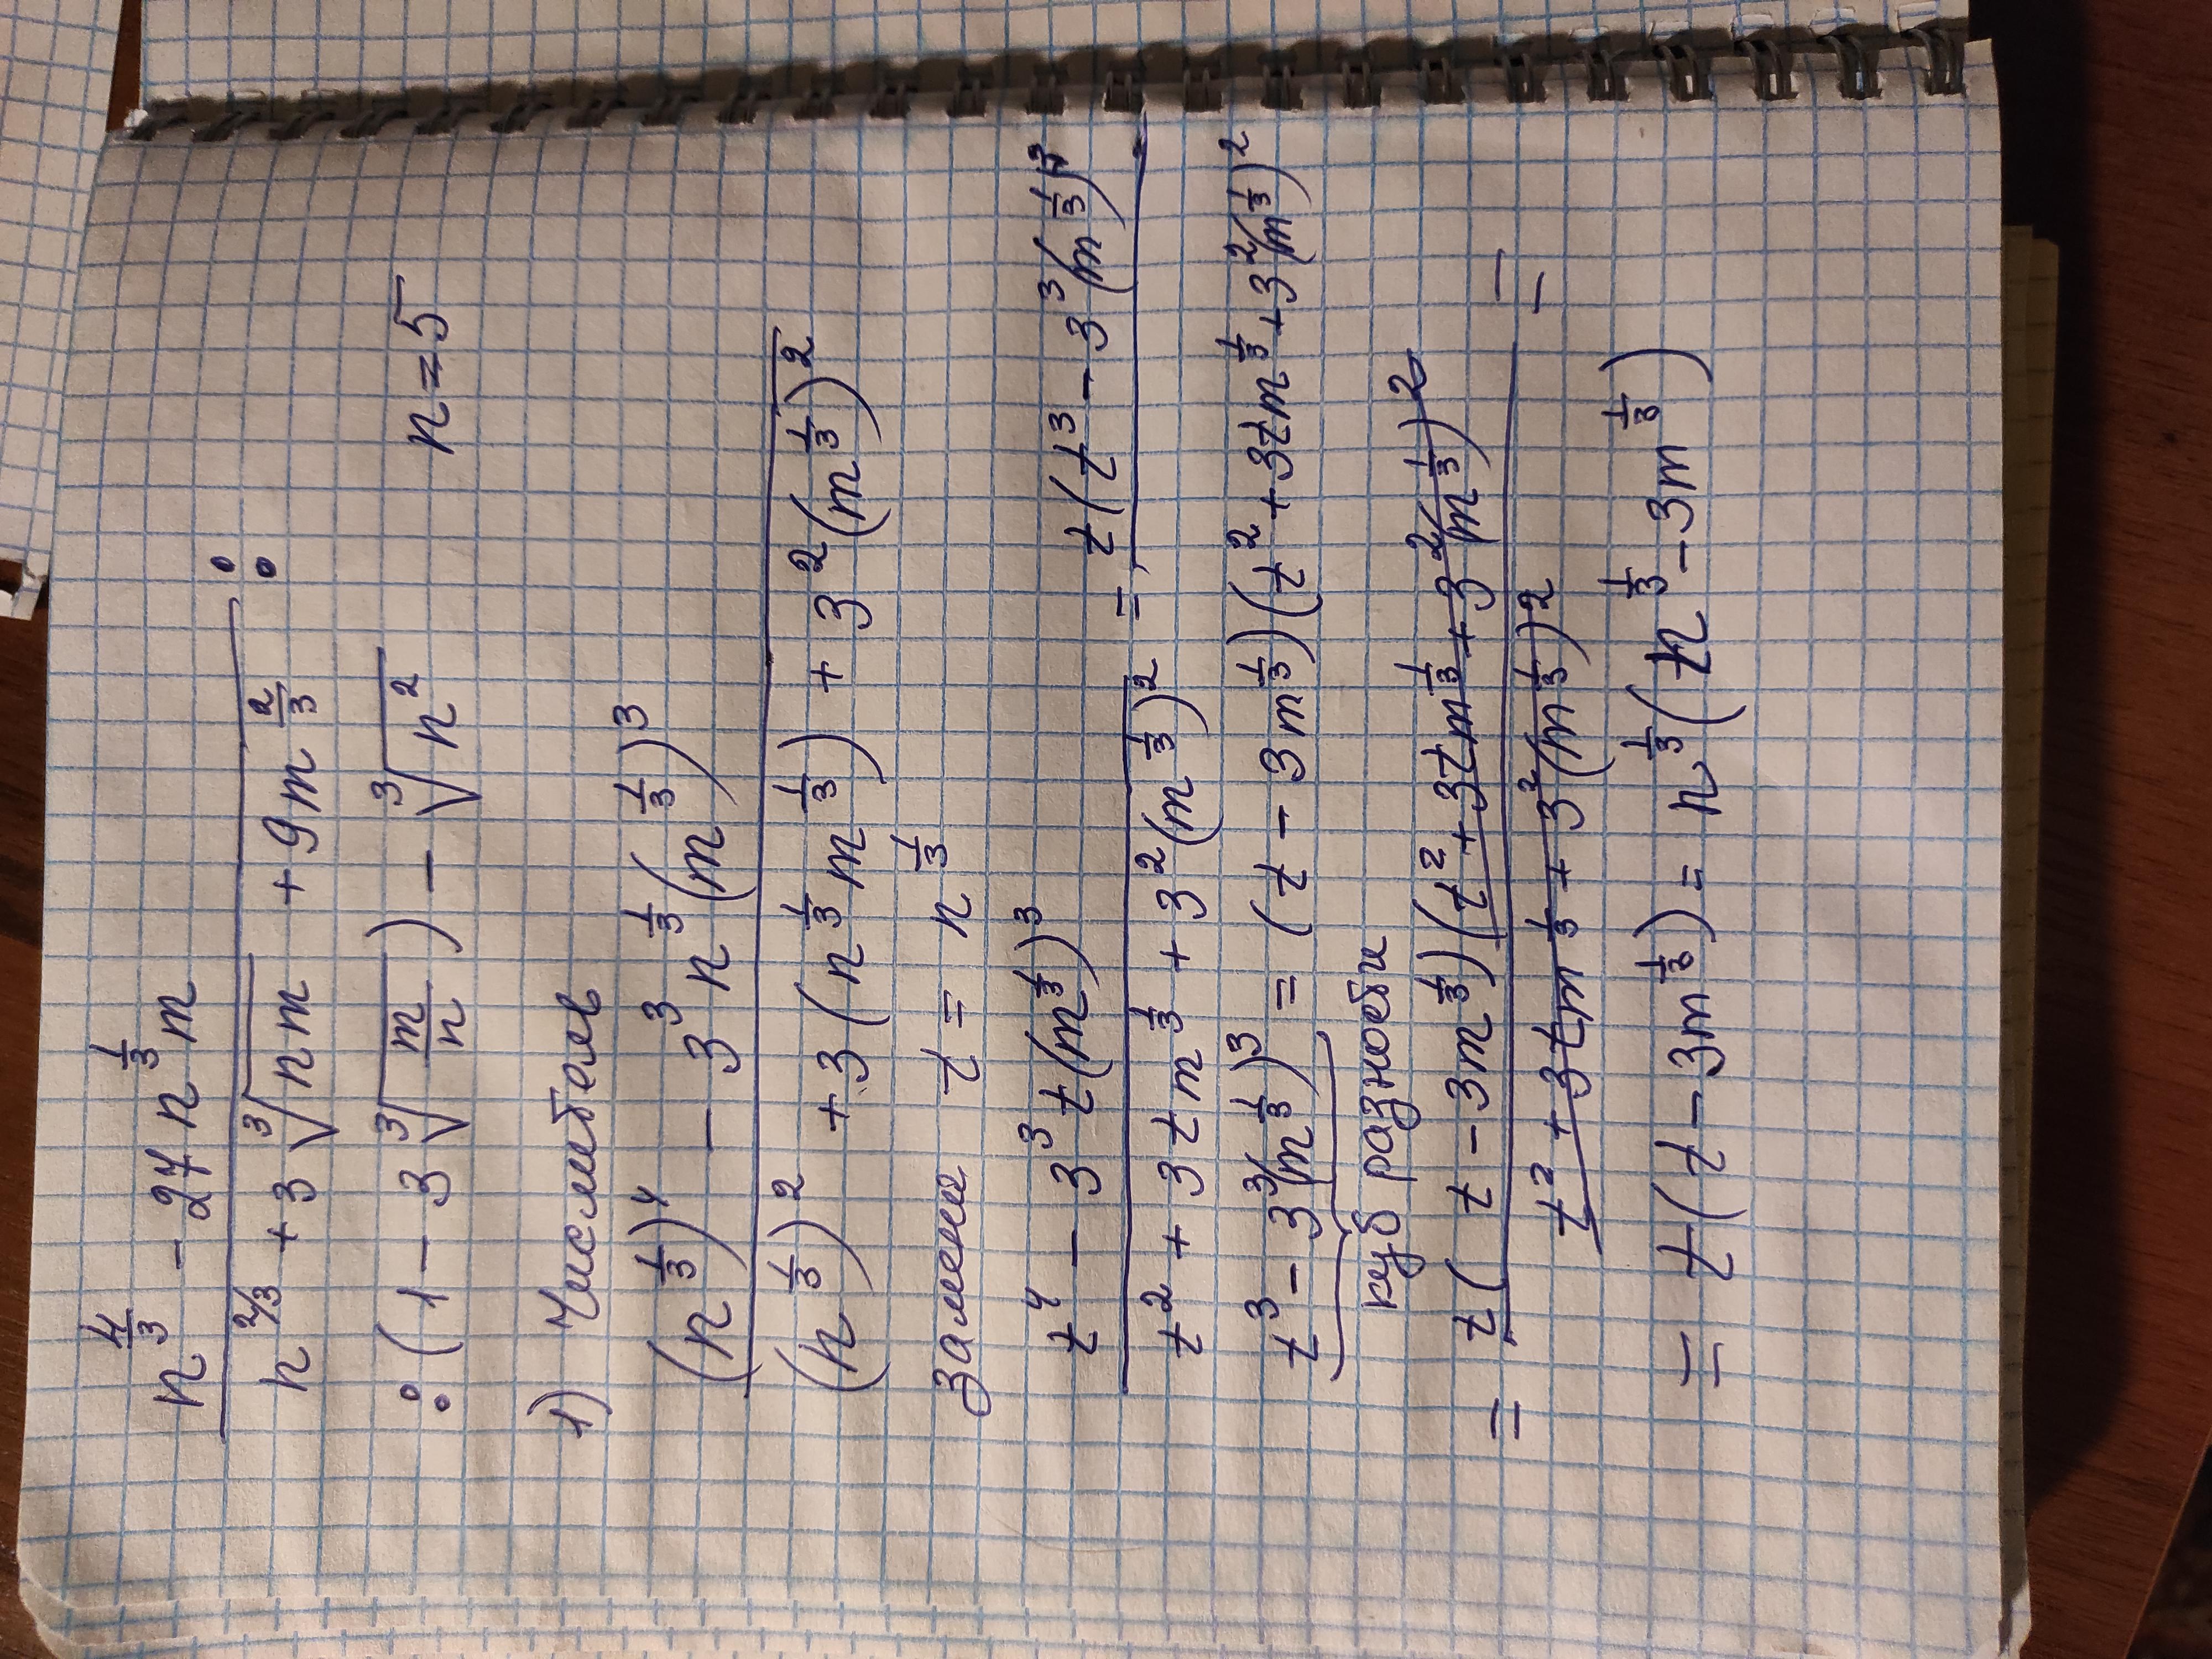 n^{4/3} - 27 n^{1/3} m
n^{2/3} + 3 ∛(nm) + 9m^{2/3} :
: (1 - 3 ∛(m/n)) - ∛(n^2) n = 5
1) Числитель
(n^{1/3})^4 - 3^3 n^{1/3} (m^{1/3})^3
(n^{1/3})^2 + 3(n^{1/3} m^{1/3}) + 3^2 (m^{1/3})^2
замена t = n^{1/3}
t^4 - 3^3 t (m^{1/3})^3 = t(t^3 - 3^3 (m^{1/3})^3
t^2 + 3tm^{1/3} + 3^2 (m^{1/3})^2
t^3 - 3^3 (m^{1/3})^3 = (t - 3m^{1/3})(t^2 + 3tm^{1/3} + 3^2 (m^{1/3})^2
куб разности
= t(t - 3m^{1/3})(t^2 + 3tm^{1/3} + 3^2 (m^{1/3})^2 =
t^2 + 3tm^{1/3} + 3^2 (m^{1/3})^2
= t(t - 3m^{1/3}) = n^{1/3}(n^{1/3} - 3m^{1/3})